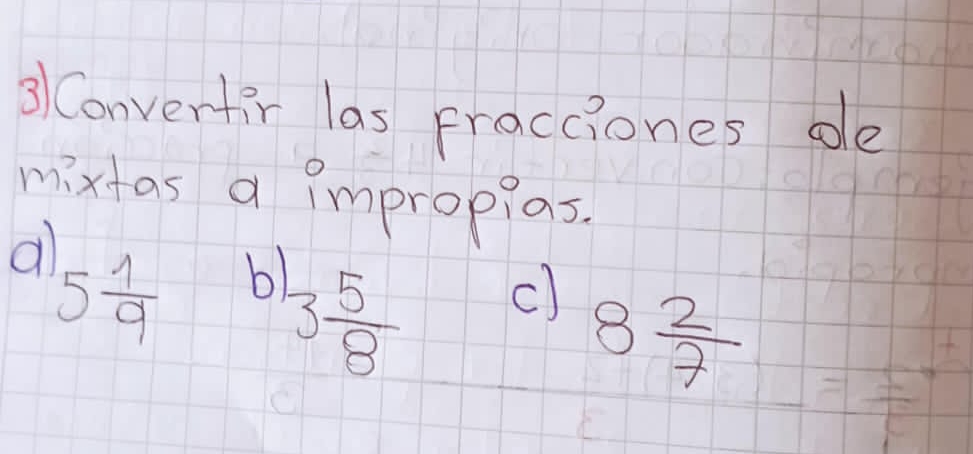 3) Convertir las fracciones de
mixtas a impropias.
a) 5 1/9 b) 3 5/8 c) 8 2/7